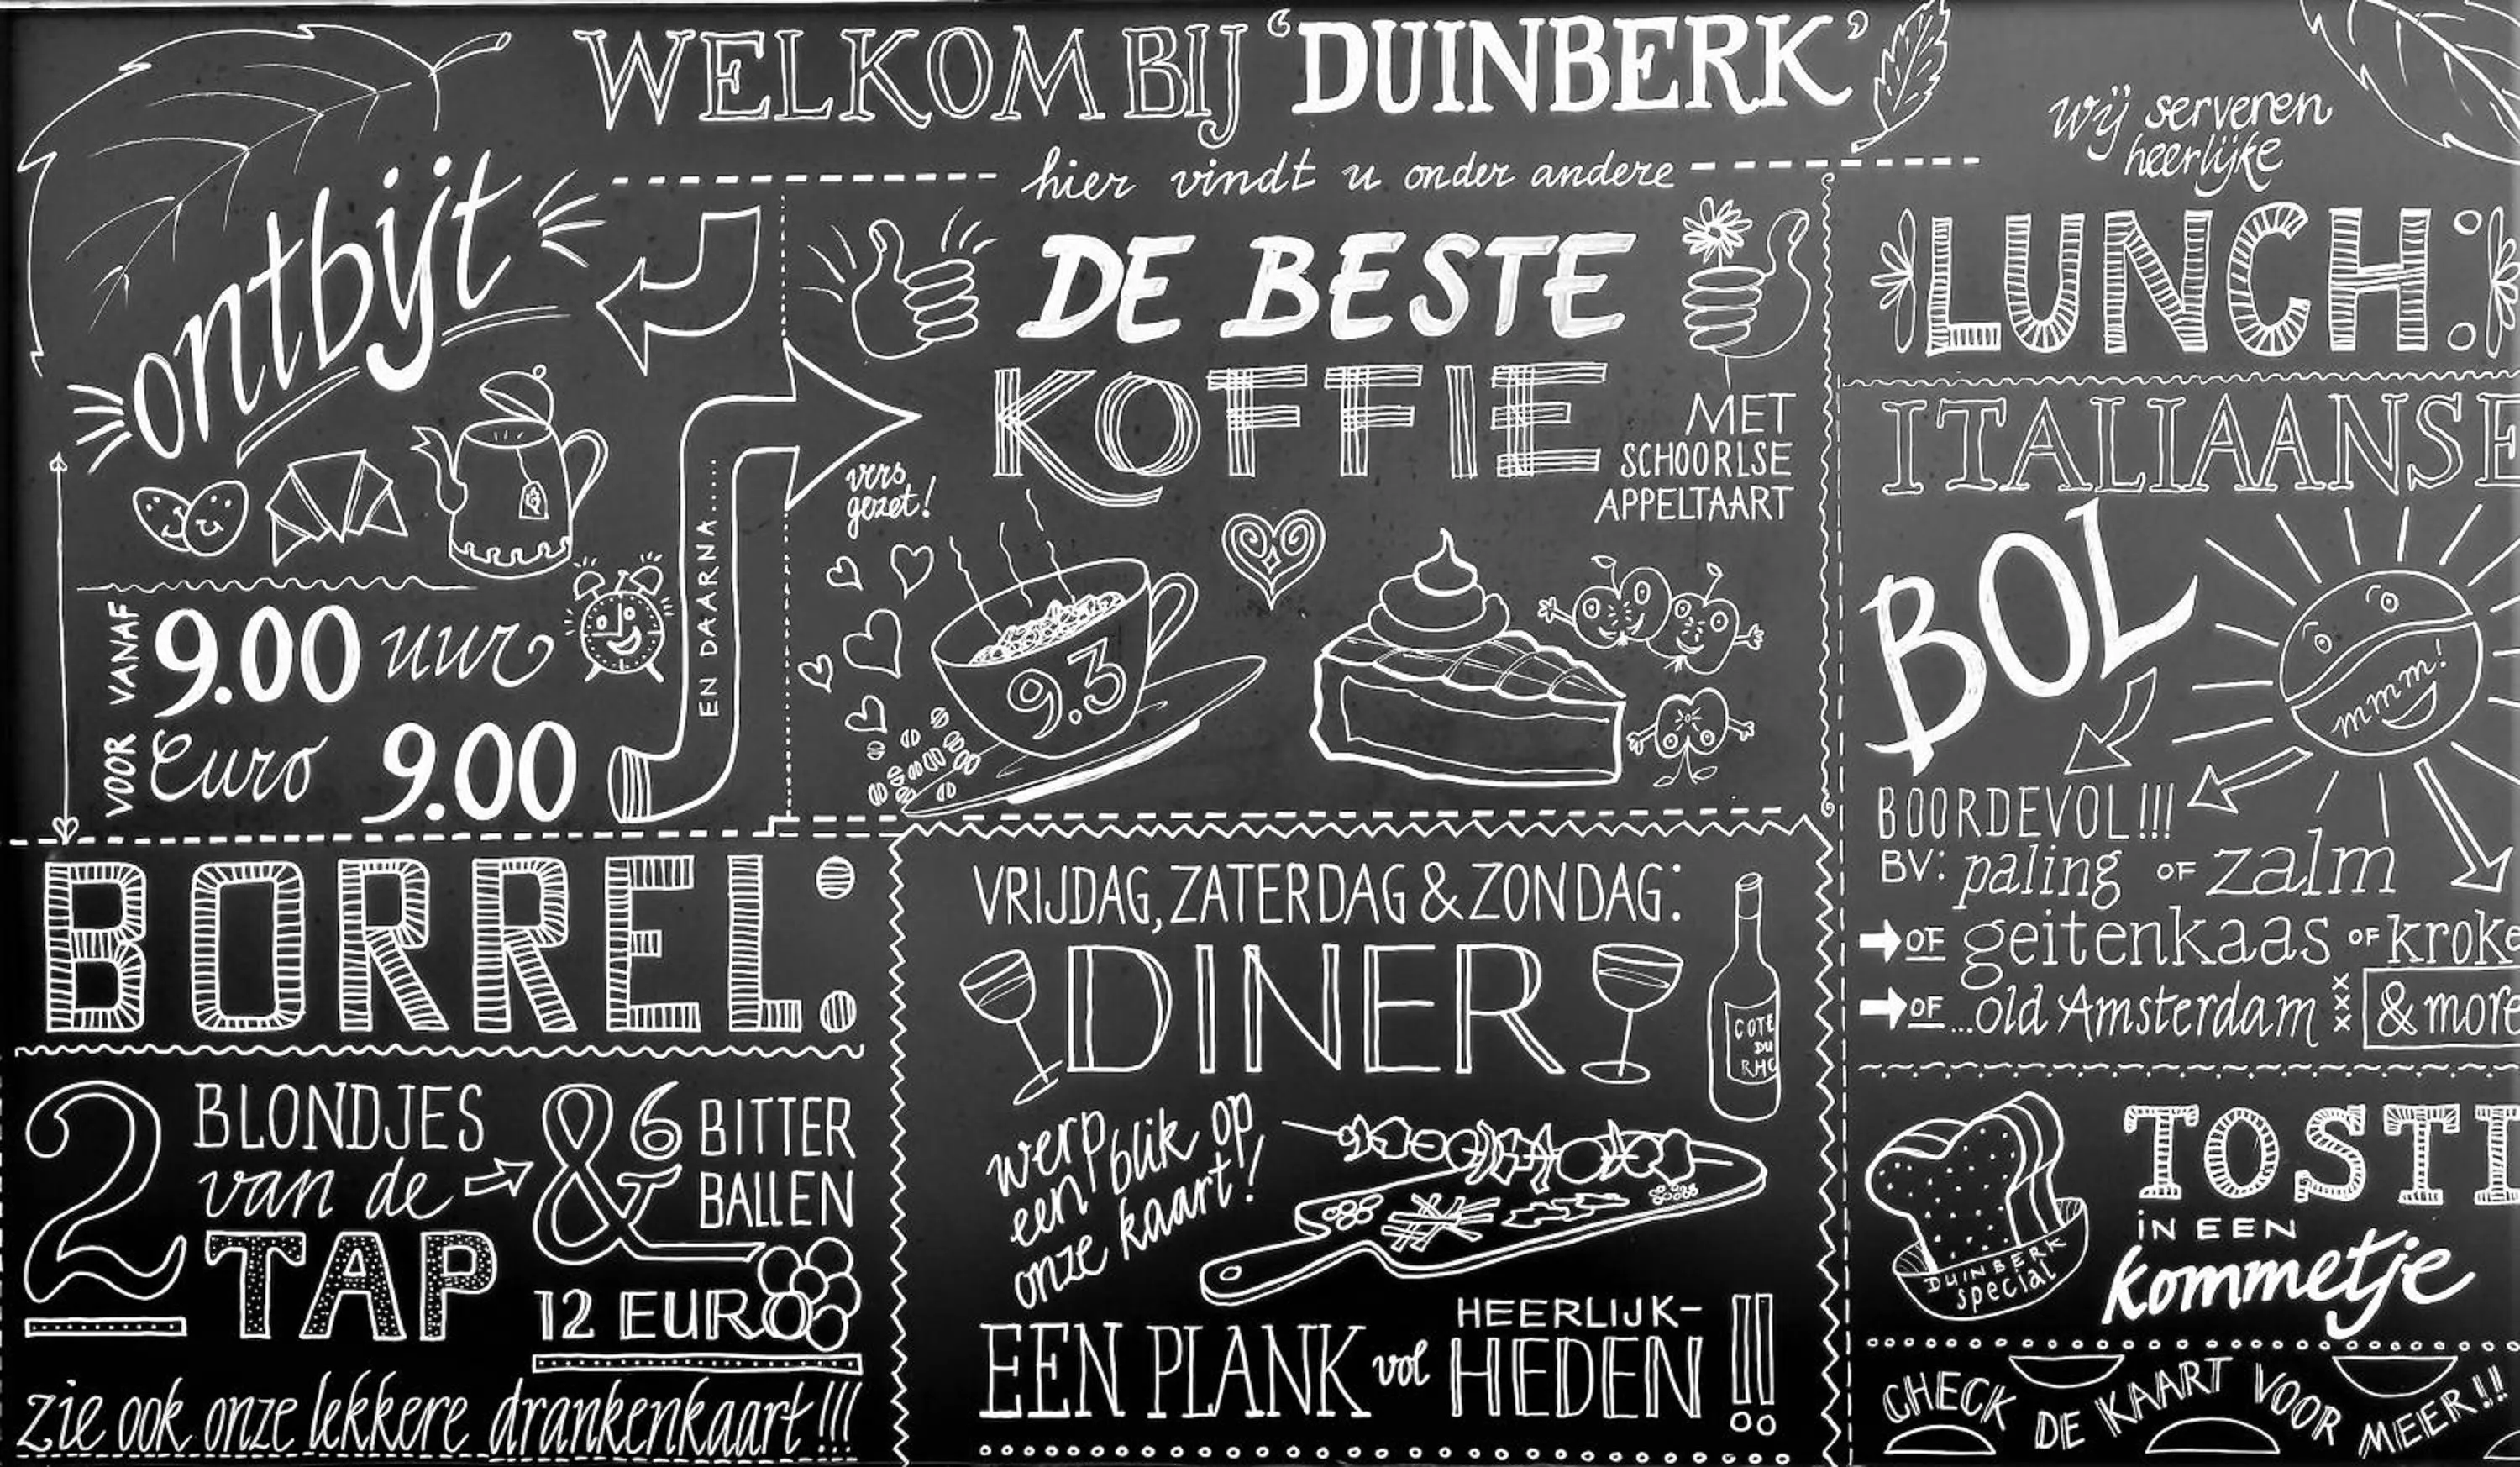 WELKOM BIJ 'DUINBERK'
hier vindt u onder andere
ontbijt
VANAF 9.00 uur
VOOR Euro 9.00
EN DAARNA.....
DE BESTE
KOFFIE
MET
SCHOORLSE
APPELTAART
vers
gezet!
9.3
wij serveren
heerlijke
LUNCH:
ITALIAANSE
BOL
mmm!
BOORDEVOL!!!
BV: paling OF zalm
OF geitenkaas OF kroke
OF ...old Amsterdam xxx & more
TOSTI
IN EEN
kommetje
DUINBERK
special
CHECK DE KAART VOOR MEER!!
BORREL:
2 BLONDJES
van de
TAP
& 6 BITTER
BALLEN
12 EURO
zie ook onze lekkere drankenkaart!!!
VRIJDAG, ZATERDAG & ZONDAG:
DINER
COTE
DU
RHO
werp blik op
een
onze kaart!
EEN PLANK vol HEERLIJK-
HEDEN !!